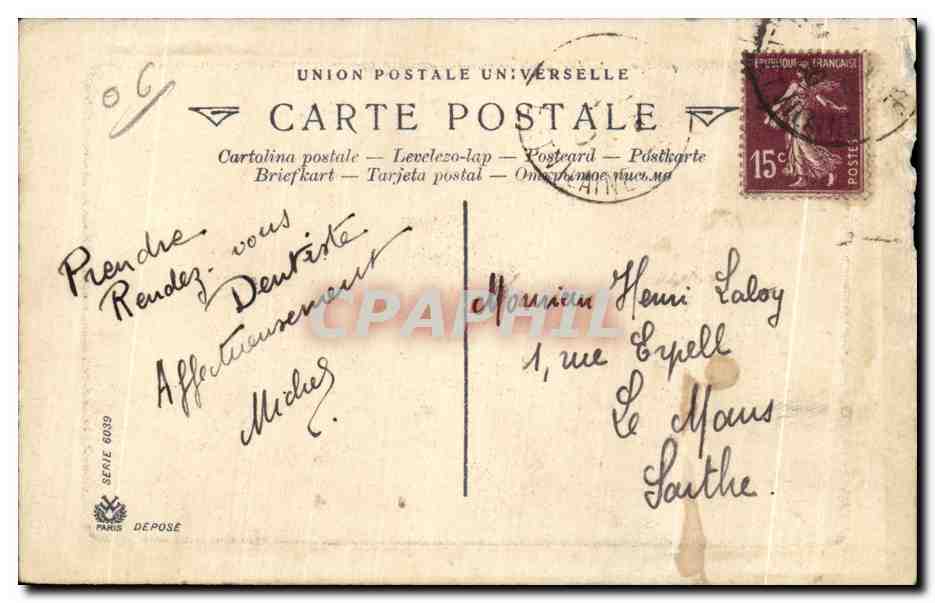 06
UNION POSTALE UNIVERSELLE
CARTE POSTALE
Cartolina postale — Levelezo-lap — Postcard — Postkarte
Briefkart — Tarjeta postal — Открытое письмо
REPUBLIQUE FRANÇAISE
15c
POSTES
Prendre
Rendez-vous
Dentiste
Affectueusement
Michel
Monsieur Henri Laloy
1, rue Erpell
Le Mans
Sarthe.
CPAPHIL
SERIE 6039
PARIS DEPOSÉ